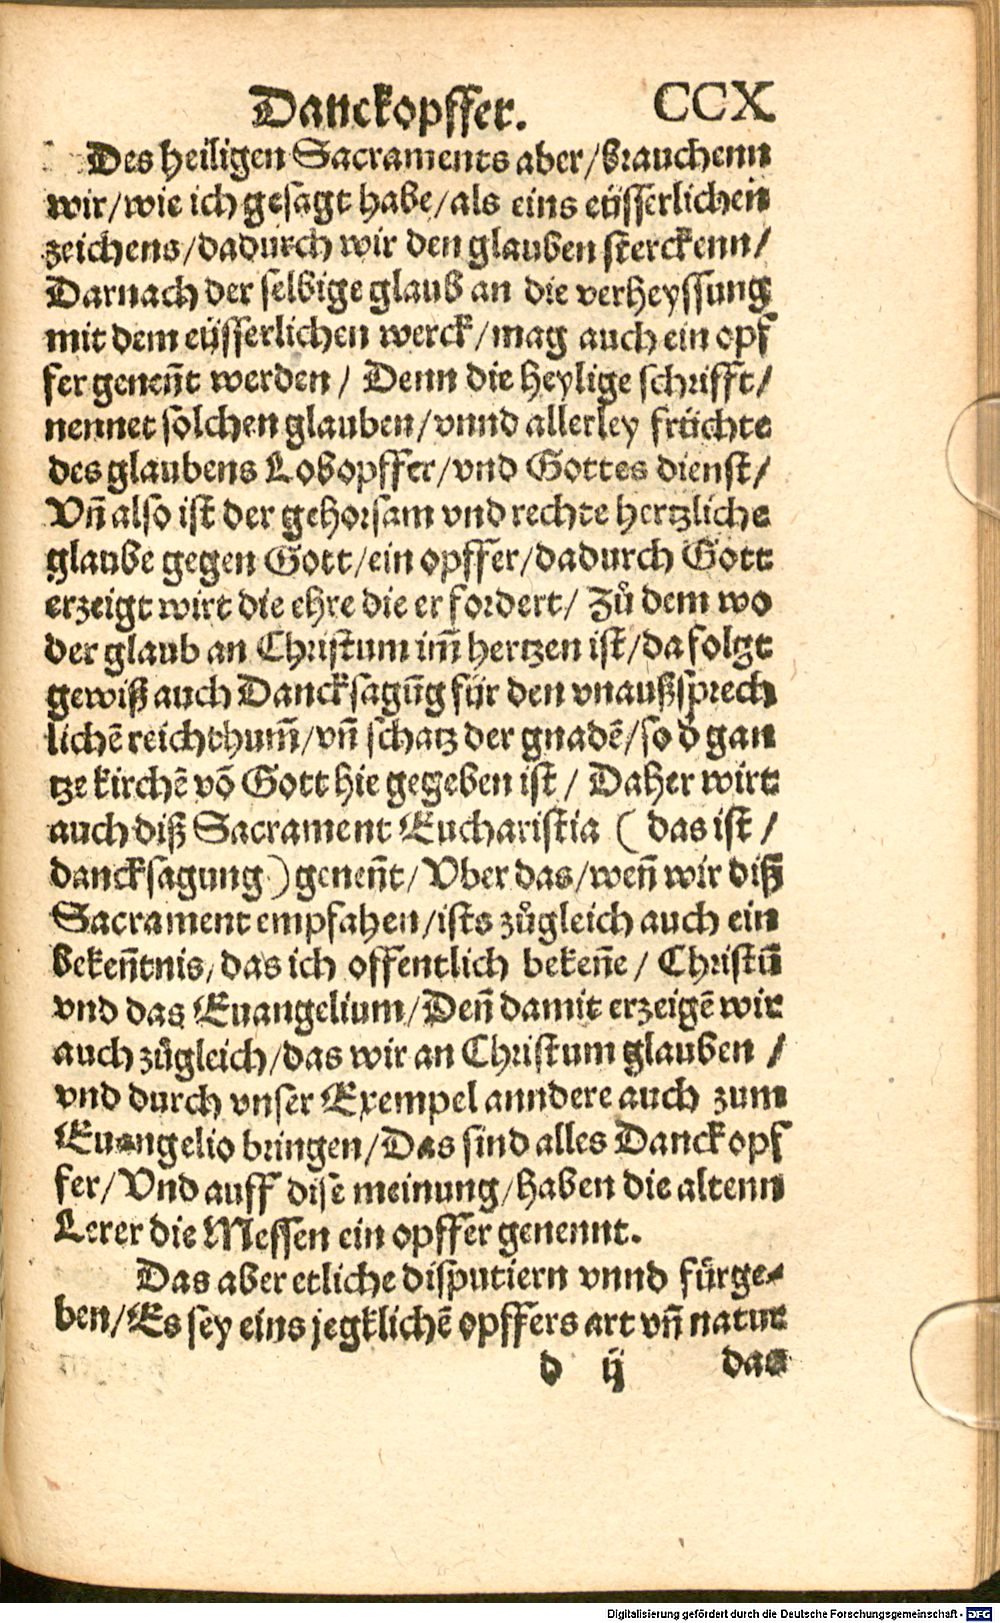 Danckopffer. CCX
Des heiligen Sacraments aber/brauchenn
wir/wie ich gesagt habe/als eins eüsserlichen
zeichens/dadurch wir den glauben sterckenn/
Darnach der selbige glaub an die verheyssung
mit dem eüsserlichen werck/mag auch ein opf
fer geneñt werden/ Denn die heylige schrifft/
nennet solchen glauben/vnnd allerley früchte
des glaubens Lobopffer/vnd Gottes dienst/
Vñ also ist der gehorsam vnd rechte hertzliche
glaube gegen Gott/ein opffer/dadurch Gott
erzeigt wirt die ehre die er fordert/ Zů dem wo
der glaub an Christum im̃ hertzen ist/da folgt
gewiß auch Dancksagũg für den vnaußsprech
lichẽ reichthum̃/vñ schatz der gnadẽ/so d̕ gan
tze kirchẽ võ Gott hie gegeben ist/ Daher wirt
auch diß Sacrament Eucharistia ( das ist /
dancksagung) geneñt/Vber das/weñ wir diß
Sacrament empfahen/ists zůgleich auch ein
bekeñtnis/das ich offentlich bekeñe/ Christũ
vnd das Euangelium/Deñ damit erzeigẽ wir
auch zůgleich/das wir an Christum glauben /
vnd durch vnser Exempel anndere auch zum
Euangelio bringen/Das sind alles Danckopf
fer/Vnd auff dise meinung/haben die altenn
Lerer die Messen ein opffer genennt.
Das aber etliche disputiern vnnd fürge-
ben/Es sey eins jegklichẽ opffers art vñ natur
d ij das
Digitalisierung gefördert durch die Deutsche Forschungsgemeinschaft - DFG